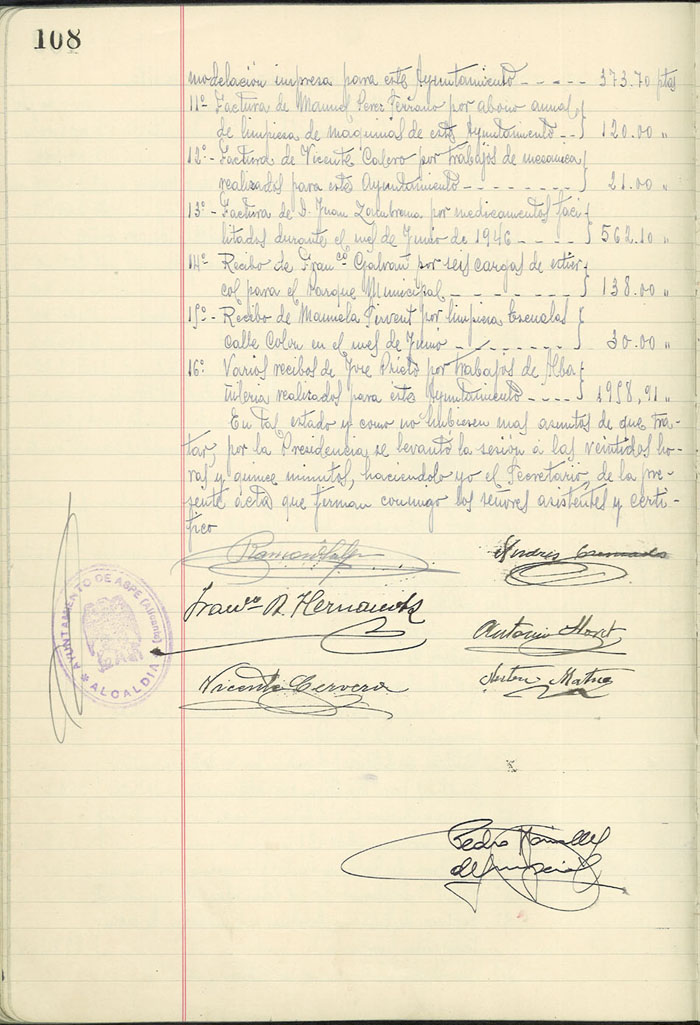 108
modelación impresa para este Ayuntamiento ----- 373.70 ptas
11º- Factura de Manuel Perez Terrano por abono anual
de limpiesa de maquinas de este Ayuntamiento -- 120.00 "
12º- Factura de Vicente Calero por trabajos de mecanica
realizados para este Ayuntamiento -------- 21.00 "
13º- Factura de D. Juan Zambrana por medicamentos faci-
litados durante el mes de Junio de 1946 ----- 562.10 "
14º- Recibo de Franco Galvañ por seis cargas de estier-
col para el Parque Municipal -------- 138.00 "
15º- Recibo de Manuela por limpiesa Escuelas
Calle Colon en el mes de Junio ------- 30.00 "
16º- Varios recibos de Jose Prieto por trabajos de Alba
ñileria realizados para este Ayuntamiento ---- 1958,91 "
En tal estado y como no hubiesen mas asuntos de que tra-
tar, por la Presidencia se levantó la sesión a las veintidos ho-
ras y quince minutos, haciendolo yo el Secretario, de la pre-
sente acta que firman conmigo los señores asistentes y certi-
fico
Ramon
Andres
Franco A. Hernandez
AYUNTAMIENTO DE ASPE (Alicante)
ALCALDIA
Antonio
Vicente Cervera
Pedro